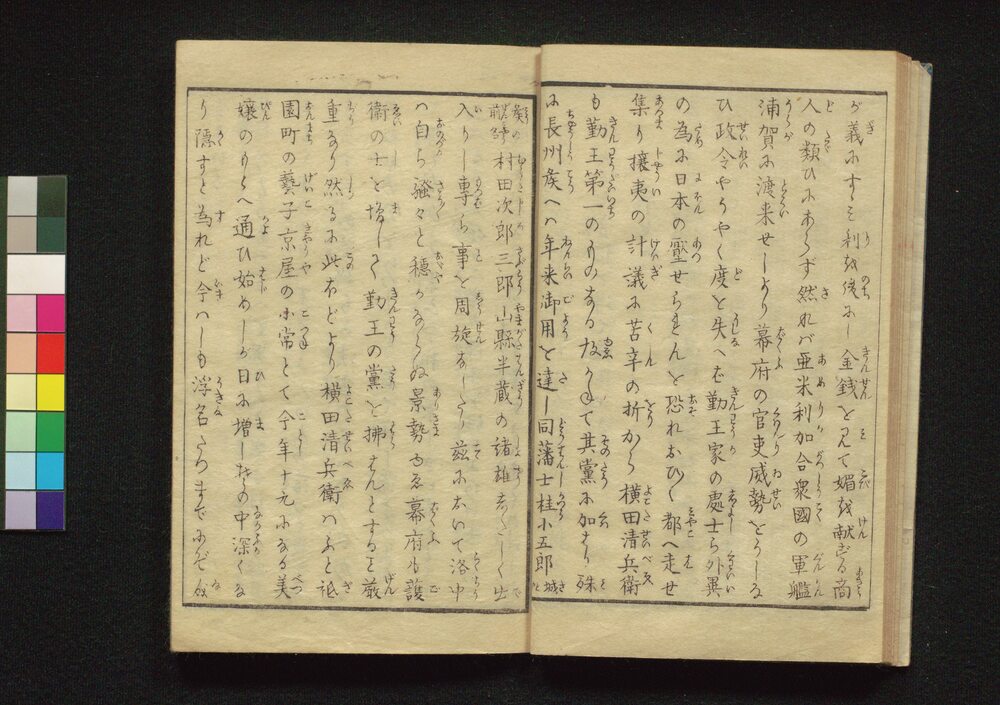 が義にすゝみ利を後にし金銭を見て媚を献ずる商
人の類ひにあらず然れバ亜米利加合衆國の軍艦
浦賀に渡来せしより幕府の官吏威勢をうしな
ひ政令やうやく度を失へば勤王家の處士ら外異
の為に日本の壓せられんを恐れおひ〳〵都へ走せ
集り攘夷の計議に苦辛の折から横田清兵衛
も勤王第一のものなる故かねて其黨に加はり殊
に長州侯へハ年来御用を達し同藩士桂小五郎
村田次郎三郎山縣半蔵の諸雄あたらしく出
入りし専ら事を周旋なしたり茲において洛中
ハ自ら騒々と穏かならぬ景勢ゆゑ幕府も護
衛の士を増しく勤王の黨を拂はんとするを厳
重なり然るに此ほどより横田清兵衛ハふと祗
園町の藝子京屋の小常とて今年十九になる美
嬢のもとへ通ひ始めしが日に増しその中深くな
り隠すと為れど今ハしも浮名たつまでにぞ